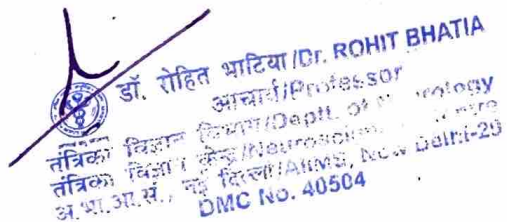 डॉ. रोहित भाटिया/Dr. ROHIT BHATIA
आचार्य/Professor
तंत्रिका विज्ञान विभाग/Deptt. of
तंत्रिका विज्ञान केन्द्र/Neuroscien
अ.भा.आ.सं., नई दिल्ली/AIIMS, New Delhi-29
DMC No. 40504